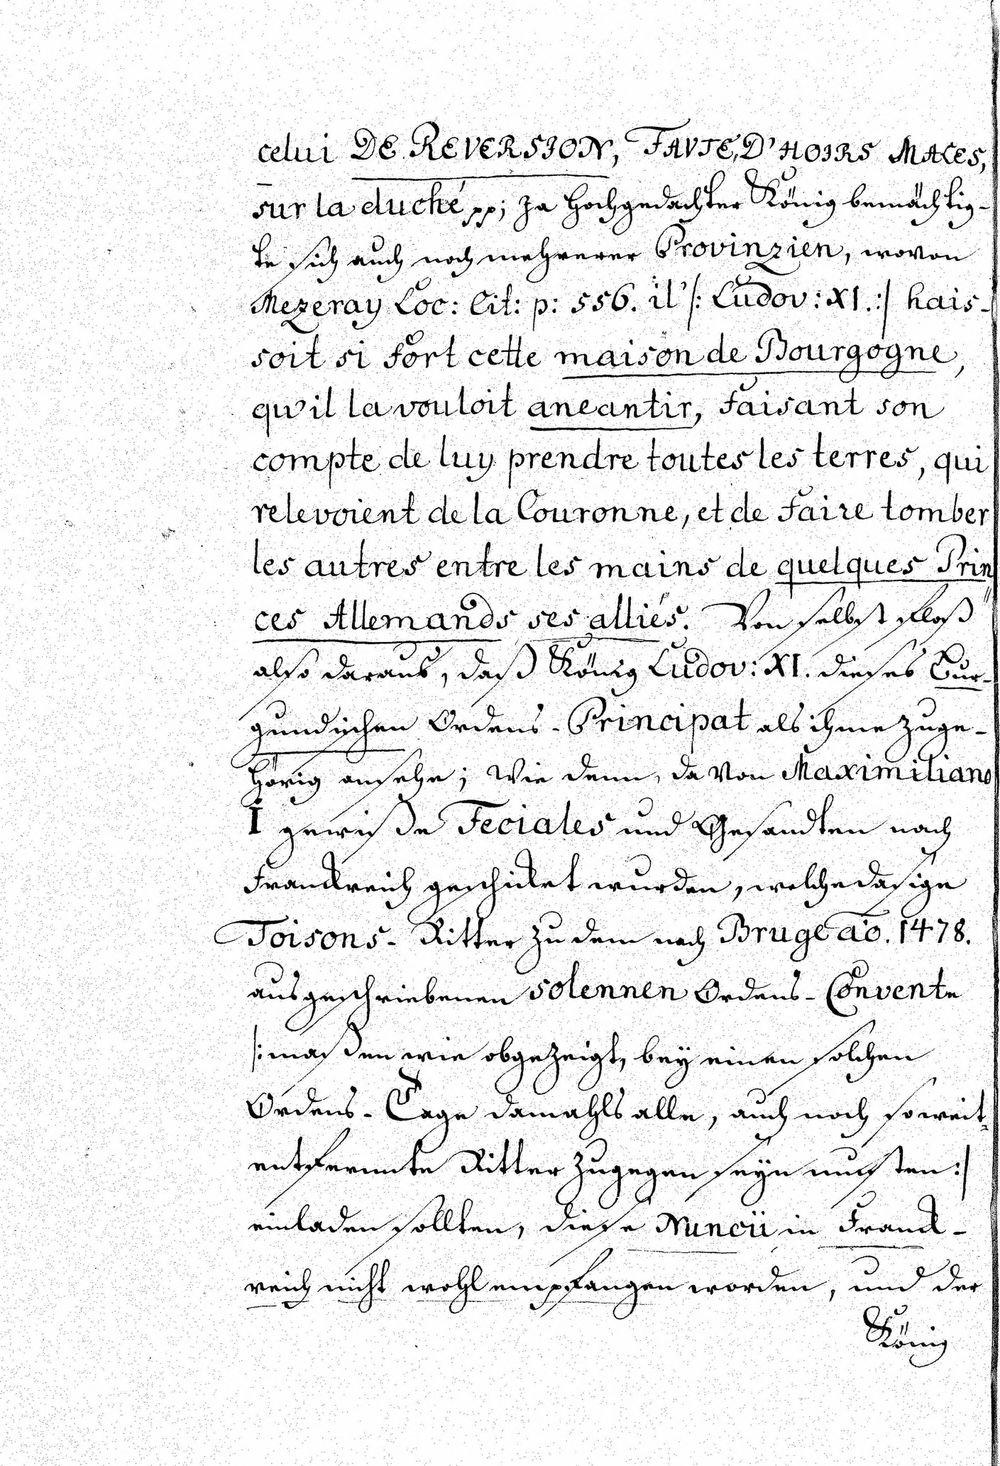 celui DE REVERSION, FAUTE, D'HOIRS MALES,
sur la duché pp; Ja hochgedachter König bemächtig-
te sich auch noch mehrerer Provinzien, wovon
Mezeray Loc: Cit: p: 556. il /: Ludov: XI. :/ hais-
soit si fort cette maison de Bourgogne,
qu'il la vouloit aneantir, faisant son
compte de luy prendre toutes les terres, qui
relevoient de la Couronne, et de faire tomber
les autres entre les mains de quelques Prin
ces Allemands ses alliés. Von selbst floß
also daraus, daß König Ludov: XI. dieses Bur-
gundischen Ordens-Principat als ihme zuge-
hörig ansehe; Wie denn, da von Maximiliano
I gewiße Feciales und Gesandten nach
Franckreich geschicket wurden, welche dasige
Toisons-Ritter zu dem nach Bruge aõ. 1478.
ausgeschriebenen solennen Ordens-Convente
/: maßen wie obgezeigt, bey einen solchen
Ordens-Tage damahls alle, auch noch so weit-
entfernnte Ritter zugegen seyn musten :/
einladen sollten, diese Nuncii in Franck-
reich nicht wohl empfangen worden, und der
König